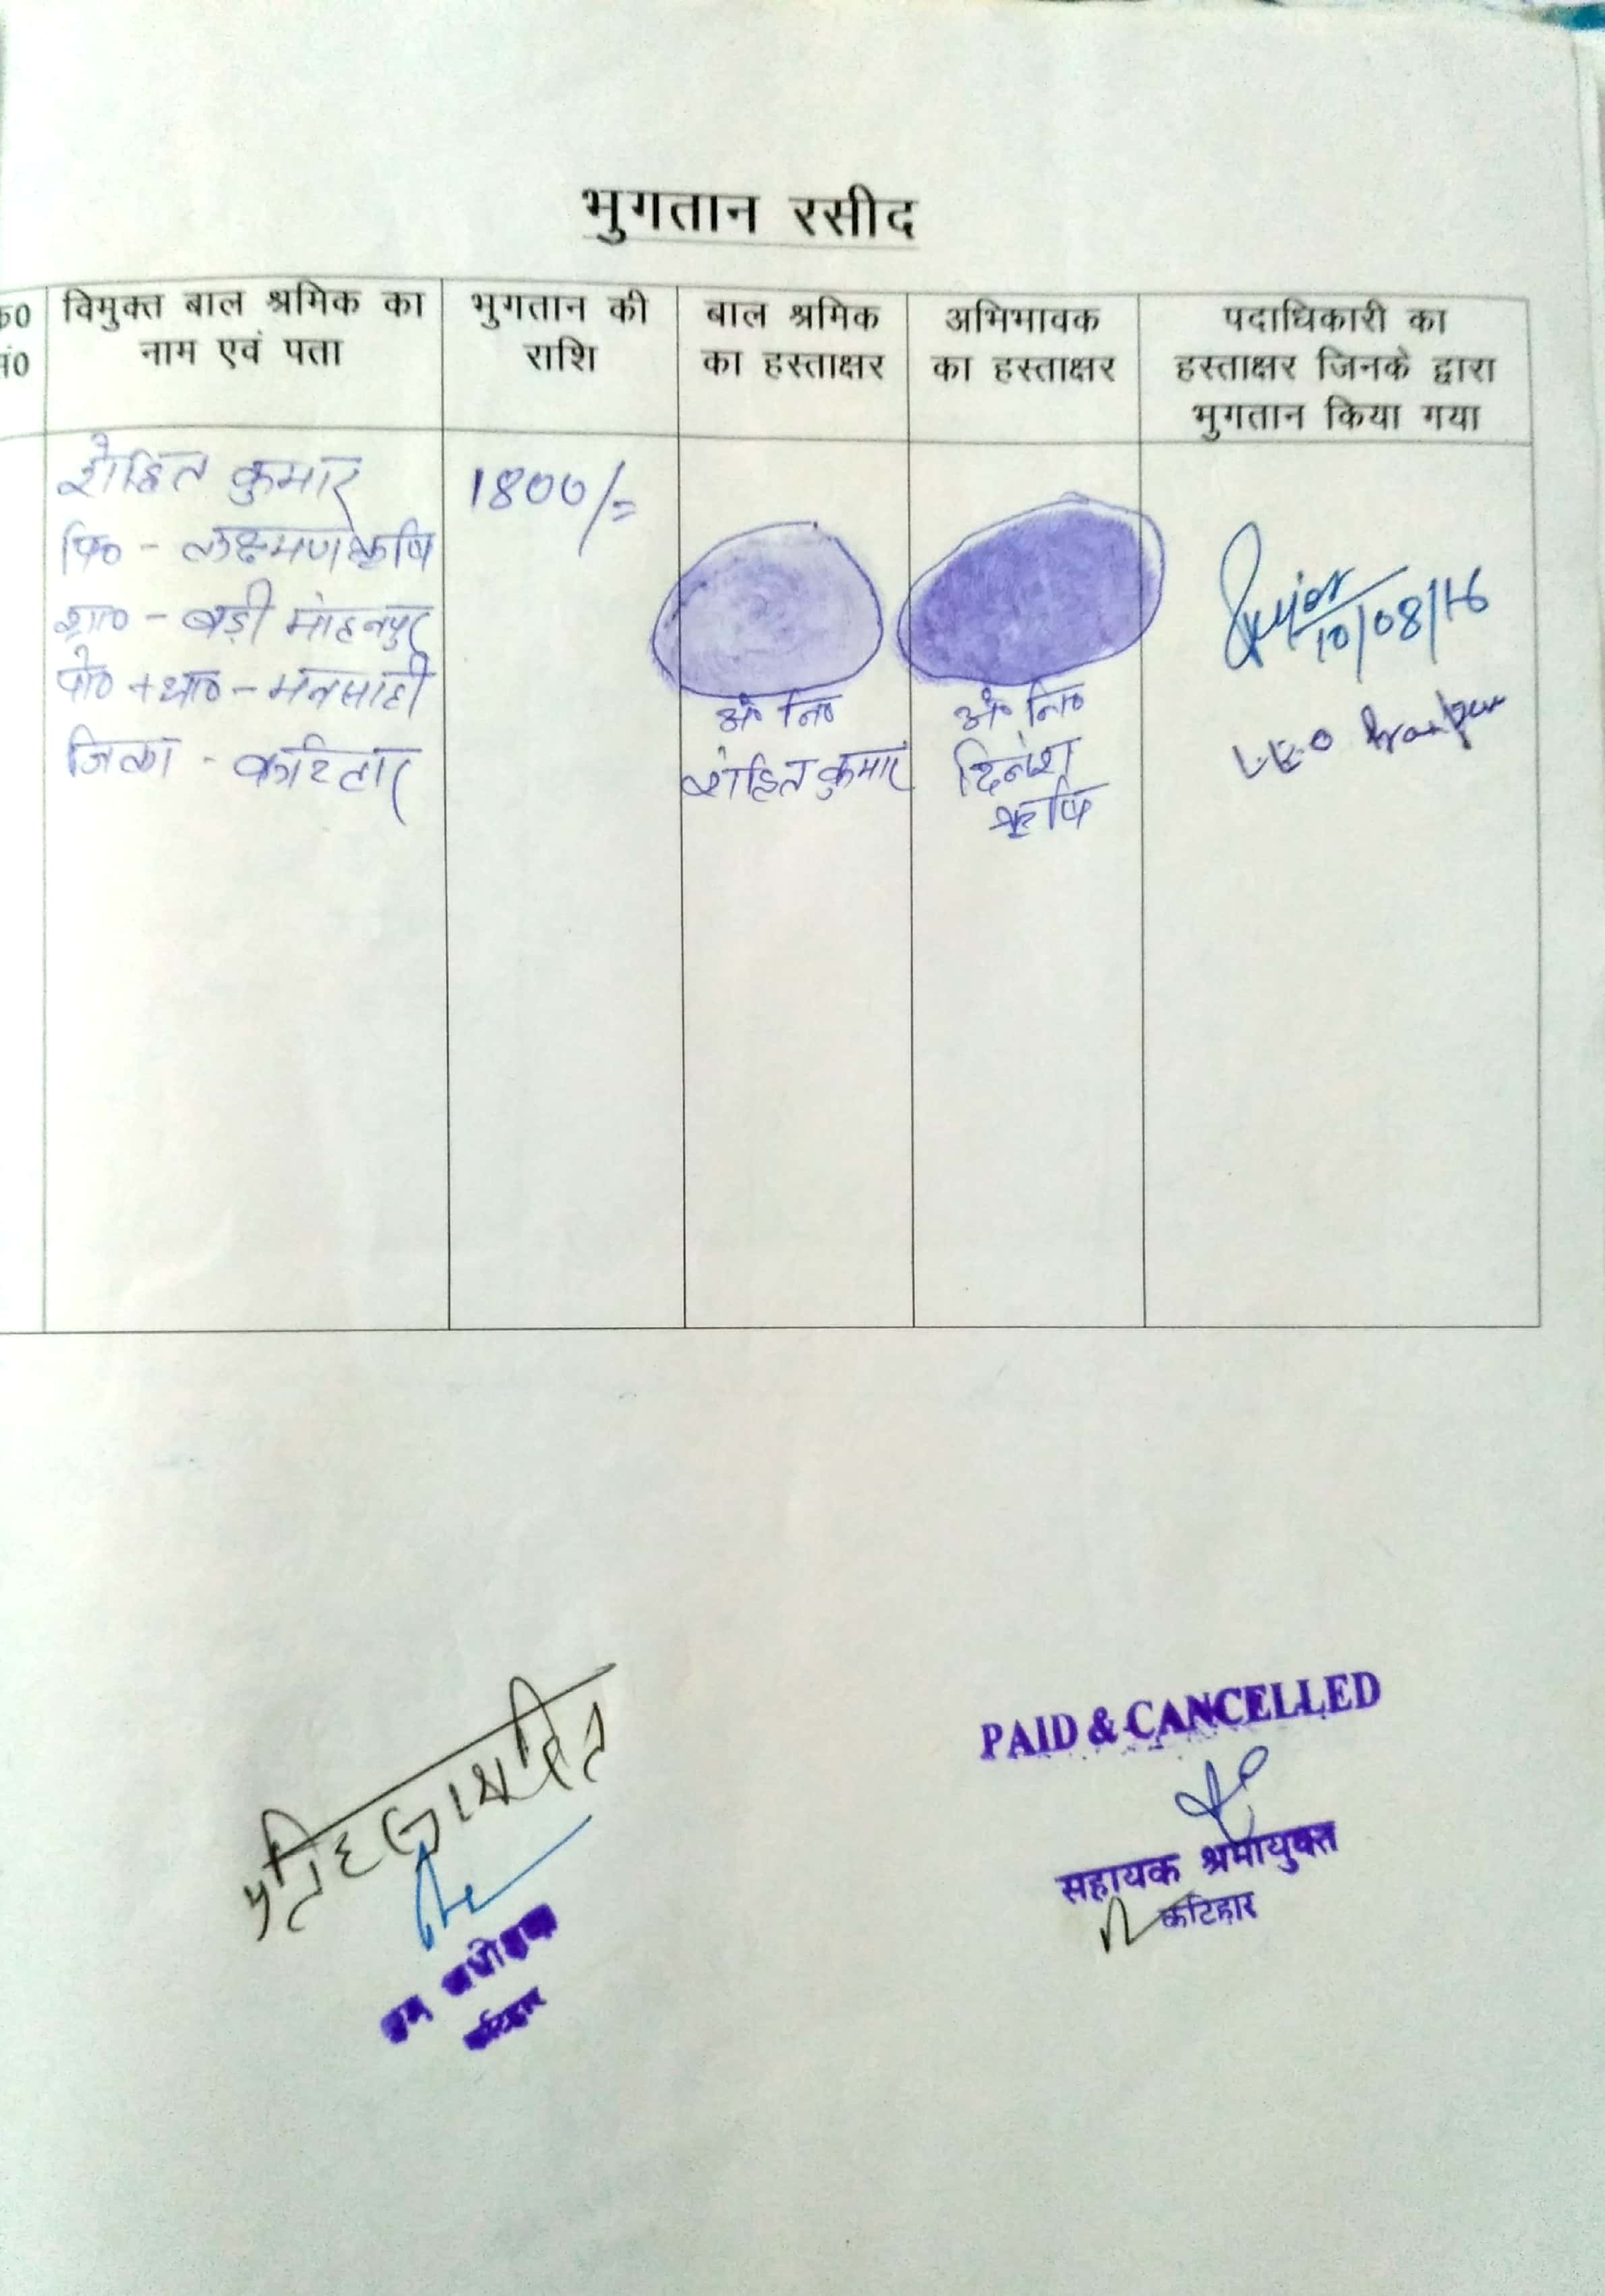 भुगतान रसीद
क0 सं0
विमुक्त बाल श्रमिक का
नाम एवं पता
भुगतान की
राशि
बाल श्रमिक
का हस्ताक्षर
अभिभावक
का हस्ताक्षर
पदाधिकारी का
हस्ताक्षर जिनके द्वारा
भुगतान किया गया
रोहित कुमार
पि० - लक्ष्मण ऋषि
ग्रा० - बड़ी मोहनपुर
पो० + था० - मनसाही
जिला - कटिहार
1800/=
अं० नि०
रोहित कुमार
अं० नि०
दिनेश
ऋषि
10/08/16
LEO
प्रतिहस्ताक्षरित
श्रम अधीक्षक
कटिहार
PAID & CANCELLED
सहायक श्रमायुक्त
कटिहार